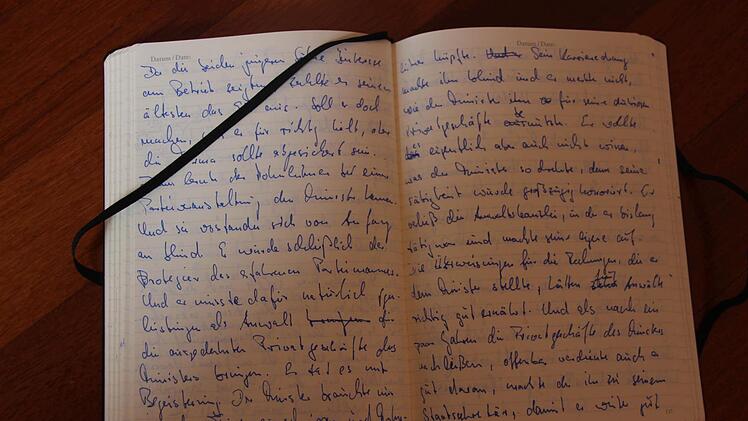 Datum / Date:
Da die beiden jüngeren Söhne Interesse
am Betrieb zeigten, zahlte er seinen
ältesten das aus. Soll er doch
machen, was er für richtig hielt, aber
die Firma sollte abgesichert sein.
Dann lernte der bei einer
Parteiveranstaltung den Minister kennen.
Und sie verstanden sich von Anfang
an blind. Er wurde schließlich der
Protegier des erfahrenen Parteimannes.
Und er musste dafür natürlich Gegen-
leistungen als Anwalt für
die ausgedehnten Privatgeschäfte des
Ministers bringen. Er tat es mit
Begeisterung. Der Minister brauchte nur
Datum / Date:
einer Sein Karrieredrang
machte ihn blind und er merkte nicht,
wie der Minister ihn für seine dubiosen
Privatgeschäfte Er wollte
es eigentlich aber auch nicht wissen,
was der Minister so drehte, denn seine
Tätigkeit würde großzügig honoriert. Er
verließ die Anwaltskanzlei, in der er bislang
tätig war und machte seine eigene auf.
Die Überweisungen für die Rechnungen, die er
dem Minister stellte, hätten fünf Anwälte
richtig gut ernährt. Und als nach ein
paar Jahren die Privatgeschäfte des Ministers
nachließen, offenbar verdiente auch er
gut daran, machte der ihn zu seinem
Staatssekretär, damit er weiter gut